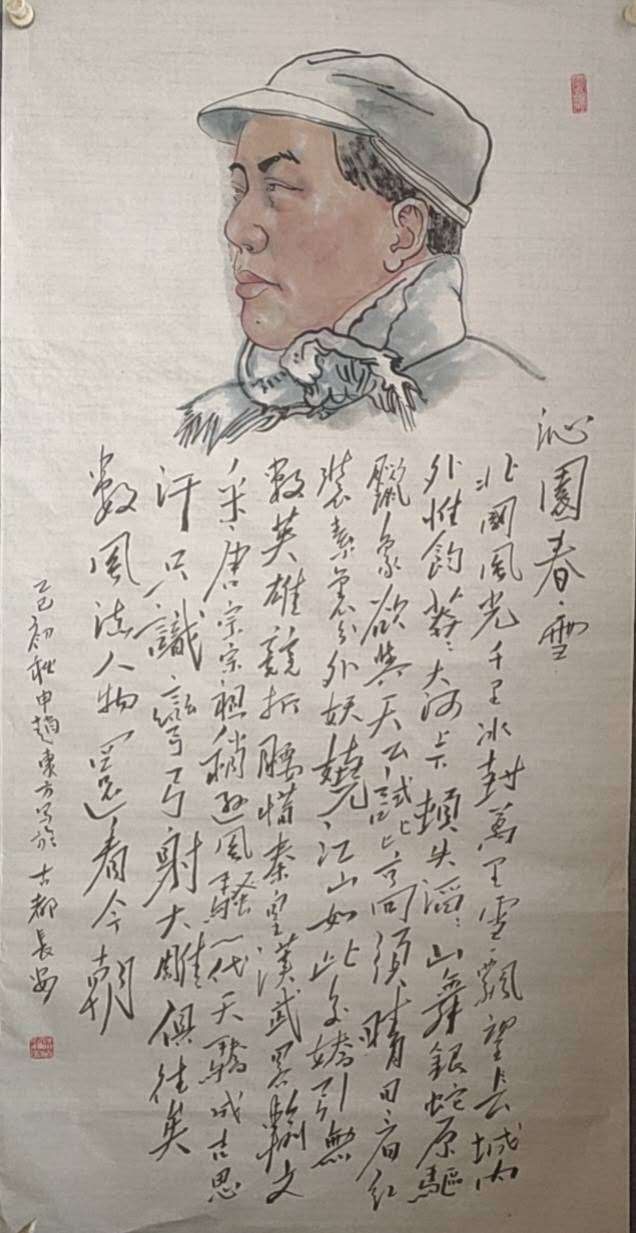 沁園春·雪
北國風光千里冰封萬里雪飄望長城內
外惟餘莽〻大河上下頓失滔〻山舞銀蛇原驅
蠟象欲與天公試比高須晴日看紅
裝素裹分外妖嬈江山如此多嬌引無
數英雄競折腰惜秦皇漢武略輸文
采唐宗宋祖稍遜風騷一代天驕成吉思
汗只識彎弓射大雕俱往矣
數風流人物還看今朝
乙巳初秋申趙東方写於古都長安